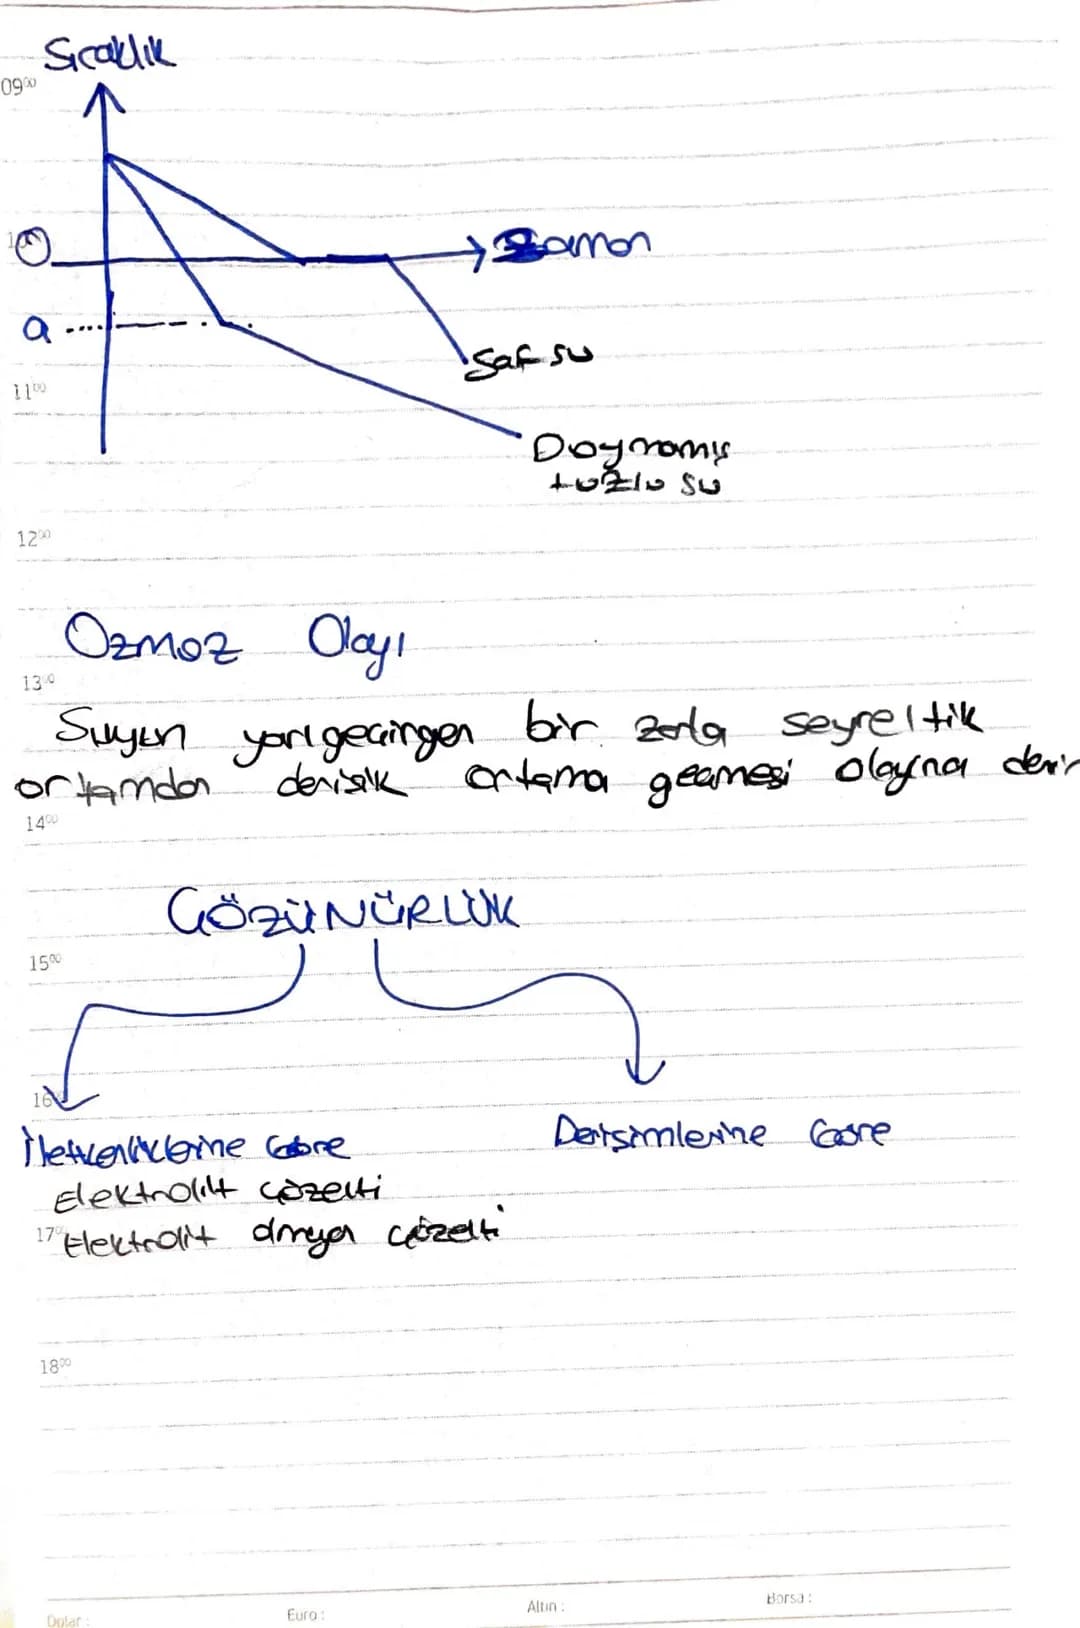 Sıcaklık
09⁰⁰
0
Zaman
a
Saf su
11⁰⁰
Doymamış
tuzlu su
12⁰⁰
Ozmoz Olayı
13⁰⁰
Suyun yarı geçirgen bir zarla seyreltik
ortamdan derişik ortama geçmesi olayına denir
14⁰⁰
ÇÖZÜNÜRLÜK
15⁰⁰
16
İletkenliklerine Göre
Derişimlerine Göre
Elektrolit çözelti
17⁰⁰ Elektrolit olmayan çözelti
18⁰⁰
Dolar :
Euro :
Altın :
Borsa :